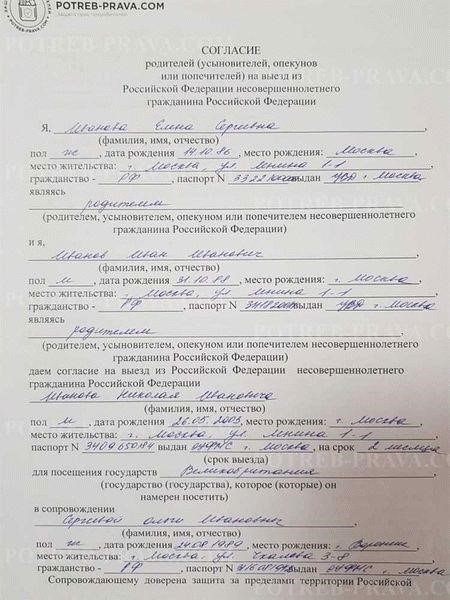 POTREB-PRAVA.COM
СОГЛАСИЕ
родителей (усыновителей, опекунов
или попечителей) на выезд из
Российской Федерации несовершеннолетнего
гражданина Российской Федерации
Я, Иванова Елена Сергеевна,
(фамилия, имя, отчество)
пол ж, дата рождения 14.10.86, место рождения: Москва,
место жительства: г. Москва, ул. Ленина 1-1,
гражданство - РФ, паспорт N выдан УВД г. Москва
являясь
родителем
(родителем, усыновителем, опекуном или попечителем несовершеннолетнего
гражданина Российской Федерации)
и я,
Иванов Иван Иванович,
(фамилия, имя, отчество)
пол м, дата рождения 31.10.88, место рождения: г. Москва,
место жительства: г. Москва, ул Ленина 1-1,
гражданство - РФ, паспорт N выдан УВД г. Москва
являясь
родителем,
(родителем, усыновителем, опекуном или попечителем несовершеннолетнего
гражданина Российской Федерации)
даем согласие на выезд из Российской Федерации несовершеннолетнего
гражданина Российской Федерации
Иванова Николая Ивановича
(фамилия, имя, отчество)
пол м, дата рождения 26.05.2003, место рождения: г. Москва,
место жительства: г. Москва, ул. Ленина 1-1,
паспорт N выдан ОУФМС г. Москва, на срок 2 месяца
(срок выезда)
для посещения государств Великобритания
(государство (государства), которое (которые) он
намерен посетить)
в сопровождении
Сергеевой Ольги Иванович,
(фамилия, имя, отчество)
пол ж, дата рождения 24.08.1989, место рождения: г. Воронеж,
место жительства: г. Москва, ул. Чкалова 3-8
гражданство - РФ, паспорт N выдан ОУФМС г. Москва
Сопровождающему доверена защита за пределами территории Российской